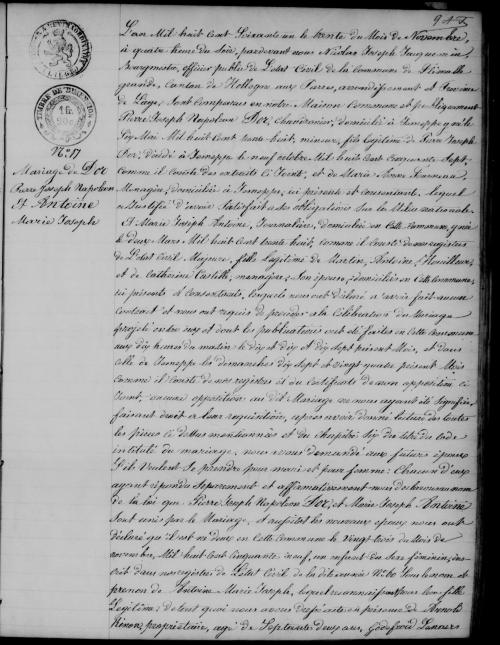 N° 17
Mariage de Dor
Pierre Joseph Napoléon
Et Antoine
Marie Joseph
L'an Mil huit Cent Soixante un le trente du Mois de Novembre,
à quatre heures du Soir, pardevant nous Nicolas Joseph
Bourgmestre, officier public de L'état Civil de la Commune de Flémalle
grande, Canton de Hollogne aux Pierres, arrondissement et Province
de Liége, Sont Comparus en notre Maison Commune et pr
Pierre Joseph Napoléon Dor, domicilié à Jemeppe y né le
Six Mai Mil huit Cent trente huit, mineur, fils Légitime de Pierre Joseph
Dor, décédé à Jemeppe le neuf octobre Mil huit Cent Cinquante Sept,
Comme il Conste des extraits ci Joints, et de Marie Anne
Ménagère, domiciliée à Jemeppe, ici présente et Consentante, lequel
a Justifié d'avoir Satisfait à Ses obligations Sur la Milice nationale.
Et Marie Joseph Antoine, Journalière, domiciliée en Cette Commune, y née
le deux Mars Mil huit Cent trente huit, comme il Conste de nos registres
de L'état Civil, Majeure, fille Légitime de Martin Antoine, Houilleur,
et de Catherine Castille, ménagère, Son épouse, domiciliés en Cette Commune,
ici présents et Consentants, lesquels nous ont déclaré n'avoir fait aucun
Contract et nous ont requis de procéder à la Célébration du Mariage
projeté entre eux et dont les publications ont été faites en Cette Commune
aux dix heures du matin le dix et dix Sept présent Mois, et dans
celle de Jemeppe les dimanches dix Sept et vingt quatre présent Mois
Comme il Conste de nos registres et du Certificat de non opposition ci
Joint, aucune opposition au dit Mariage ne nous ayant été Signifiée
faisant droit à Leur réquisition, après avoir donné lecture de toutes
les pièces ci dessus mentionnées et du Chapitre Six du titre du Code
intitulé du mariage, nous avons demandé aux futurs époux
S'ils Veulent Se prendre pour mari et pour femme: Chacun d'eux
ayant répondu Séparément et affirmativement nous déclarons au nom
de la Loi que Pierre Joseph Napoléon Dor, et Marie Joseph Antoine
Sont unis par le Mariage, et aussitôt les nouveaux époux nous ont
déclaré que il est né deux en Cette Commune le Vingt trois du Mois de
novembre, Mil huit Cent Cinquante neuf, un enfant du Sexe féminin, ins
crit dans nos registres de L'état Civil de la dite année N° 60 Sous le nom et
prénom de Antoine Marie Joseph, lequel reconnaissent pour Leur fille
Légitime: De tout quoi nous avons dressé acte en présence de Arnold
propriétaire, agé de Septante deux ans, Godefroid Lanaers